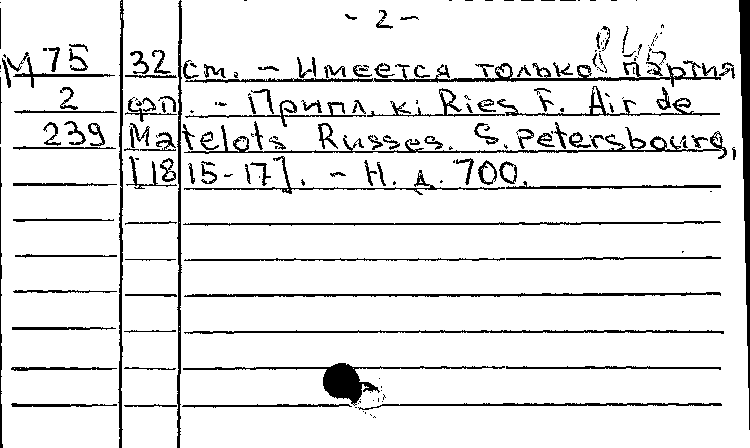 - 2 -
846
М 75 32 ст. - Имеется только партия
2 фп. - Припл. к: Ries F. Air de
239 Matelots Russes. S. Petersbourg,
[1815-17]. - Н. д. 700.